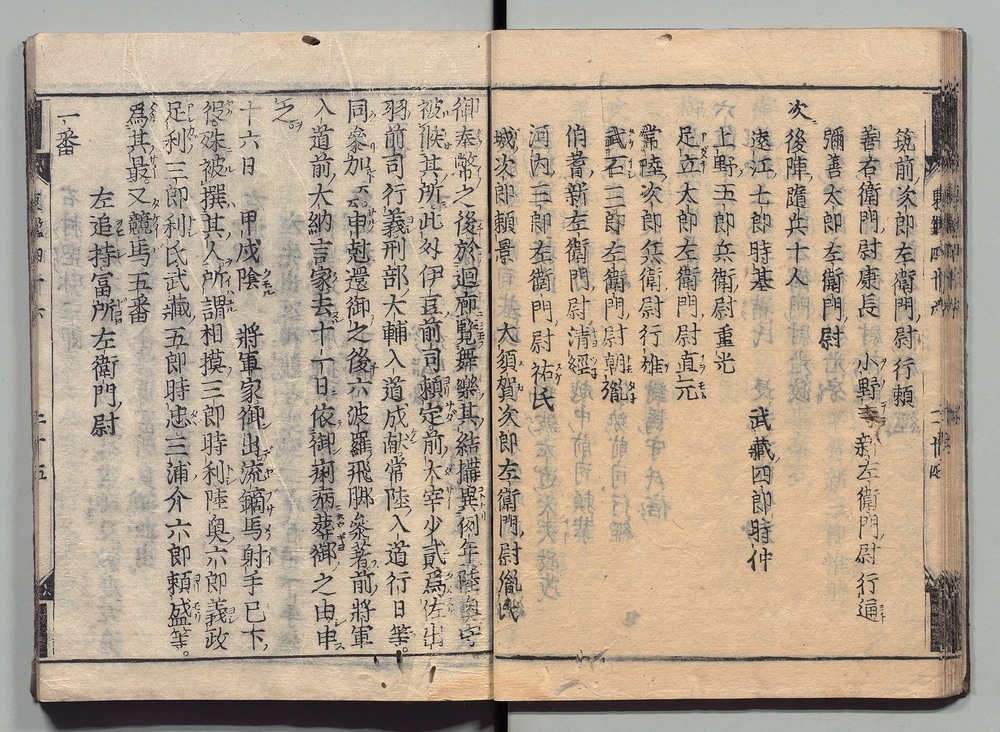 筑前次郎左衛門尉行頼
善右衛門尉康長　小野寺新左衛門尉行通
彌善太郎左衛門尉
次後陣隨兵十人
遠江七郎時基　武藏四郎時仲
上野五郎兵衛尉重光
足立太郎左衛門尉直元
常陸次郎兵衛尉行雄
武石三郎左衛門尉朝胤
伯耆新左衛門尉清經
河内三郎左衛門尉祐氏
城次郎頼景　大須賀次郎左衛門尉胤氏
御奉幣之後於廻廊覧舞樂其結搆異例年陸奥守
被候其所此外伊豆前司頼定前太宰少貳爲佐出
羽前司行義刑部大輔入道成献常陸入道行日等
同參加申尅還御之後六波羅飛脚參著前將軍
入道前大納言家去十一日依御痢病薨御之由申
之
十六日　甲戌陰　將軍家御出流鏑馬射手已下
役殊被撰其人所謂相摸三郎時利陸奥六郎義政
足利三郎利氏武藏五郎時忠三浦介六郎頼盛等
爲其最又競馬五番
一番
左追持冨所左衛門尉